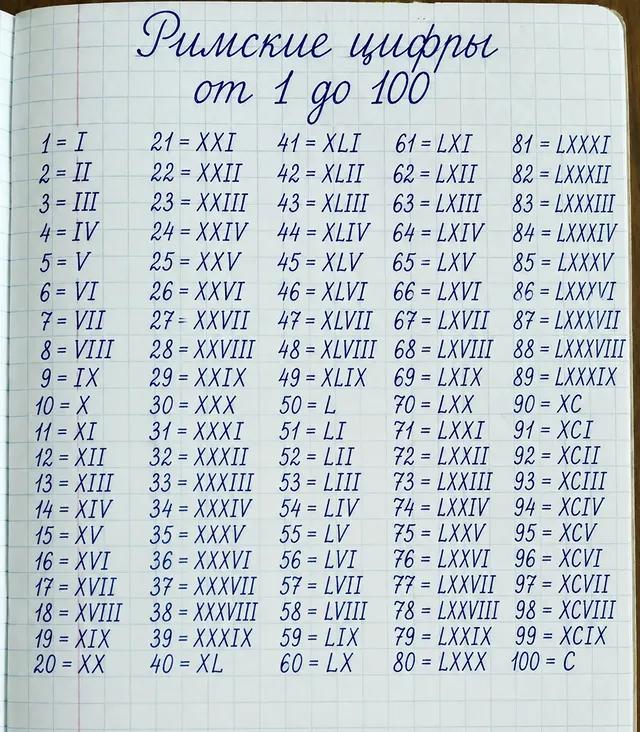 Римские цифры
от 1 до 100
1 = I 21 = XXI 41 = XLI 61 = LXI 81 = LXXXI
2 = II 22 = XXII 42 = XLII 62 = LXII 82 = LXXXII
3 = III 23 = XXIII 43 = XLIII 63 = LXIII 83 = LXXXIII
4 = IV 24 = XXIV 44 = XLIV 64 = LXIV 84 = LXXXIV
5 = V 25 = XXV 45 = XLV 65 = LXV 85 = LXXXV
6 = VI 26 = XXVI 46 = XLVI 66 = LXVI 86 = LXXXVI
7 = VII 27 = XXVII 47 = XLVII 67 = LXVII 87 = LXXXVII
8 = VIII 28 = XXVIII 48 = XLVIII 68 = LXVIII 88 = LXXXVIII
9 = IX 29 = XXIX 49 = XLIX 69 = LXIX 89 = LXXXIX
10 = X 30 = XXX 50 = L 70 = LXX 90 = XC
11 = XI 31 = XXXI 51 = LI 71 = LXXI 91 = XCI
12 = XII 32 = XXXII 52 = LII 72 = LXXII 92 = XCII
13 = XIII 33 = XXXIII 53 = LIII 73 = LXXIII 93 = XCIII
14 = XIV 34 = XXXIV 54 = LIV 74 = LXXIV 94 = XCIV
15 = XV 35 = XXXV 55 = LV 75 = LXXV 95 = XCV
16 = XVI 36 = XXXVI 56 = LVI 76 = LXXVI 96 = XCVI
17 = XVII 37 = XXXVII 57 = LVII 77 = LXXVII 97 = XCVII
18 = XVIII 38 = XXXVIII 58 = LVIII 78 = LXXVIII 98 = XCVIII
19 = XIX 39 = XXXIX 59 = LIX 79 = LXXIX 99 = XCIX
20 = XX 40 = XL 60 = LX 80 = LXXX 100 = C